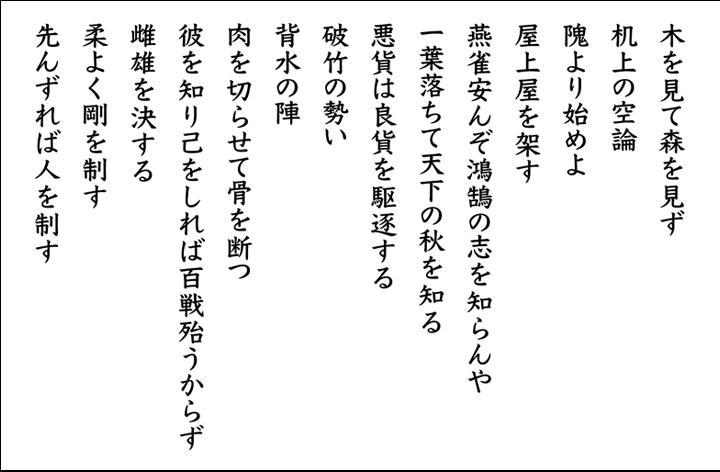 木を見て森を見ず
机上の空論
隗より始めよ
屋上屋を架す
燕雀安んぞ鴻鵠の志を知らんや
一葉落ちて天下の秋を知る
悪貨は良貨を駆逐する
破竹の勢い
背水の陣
肉を切らせて骨を断つ
彼を知り己をしれば百戦殆うからず
雌雄を決する
柔よく剛を制す
先んずれば人を制す